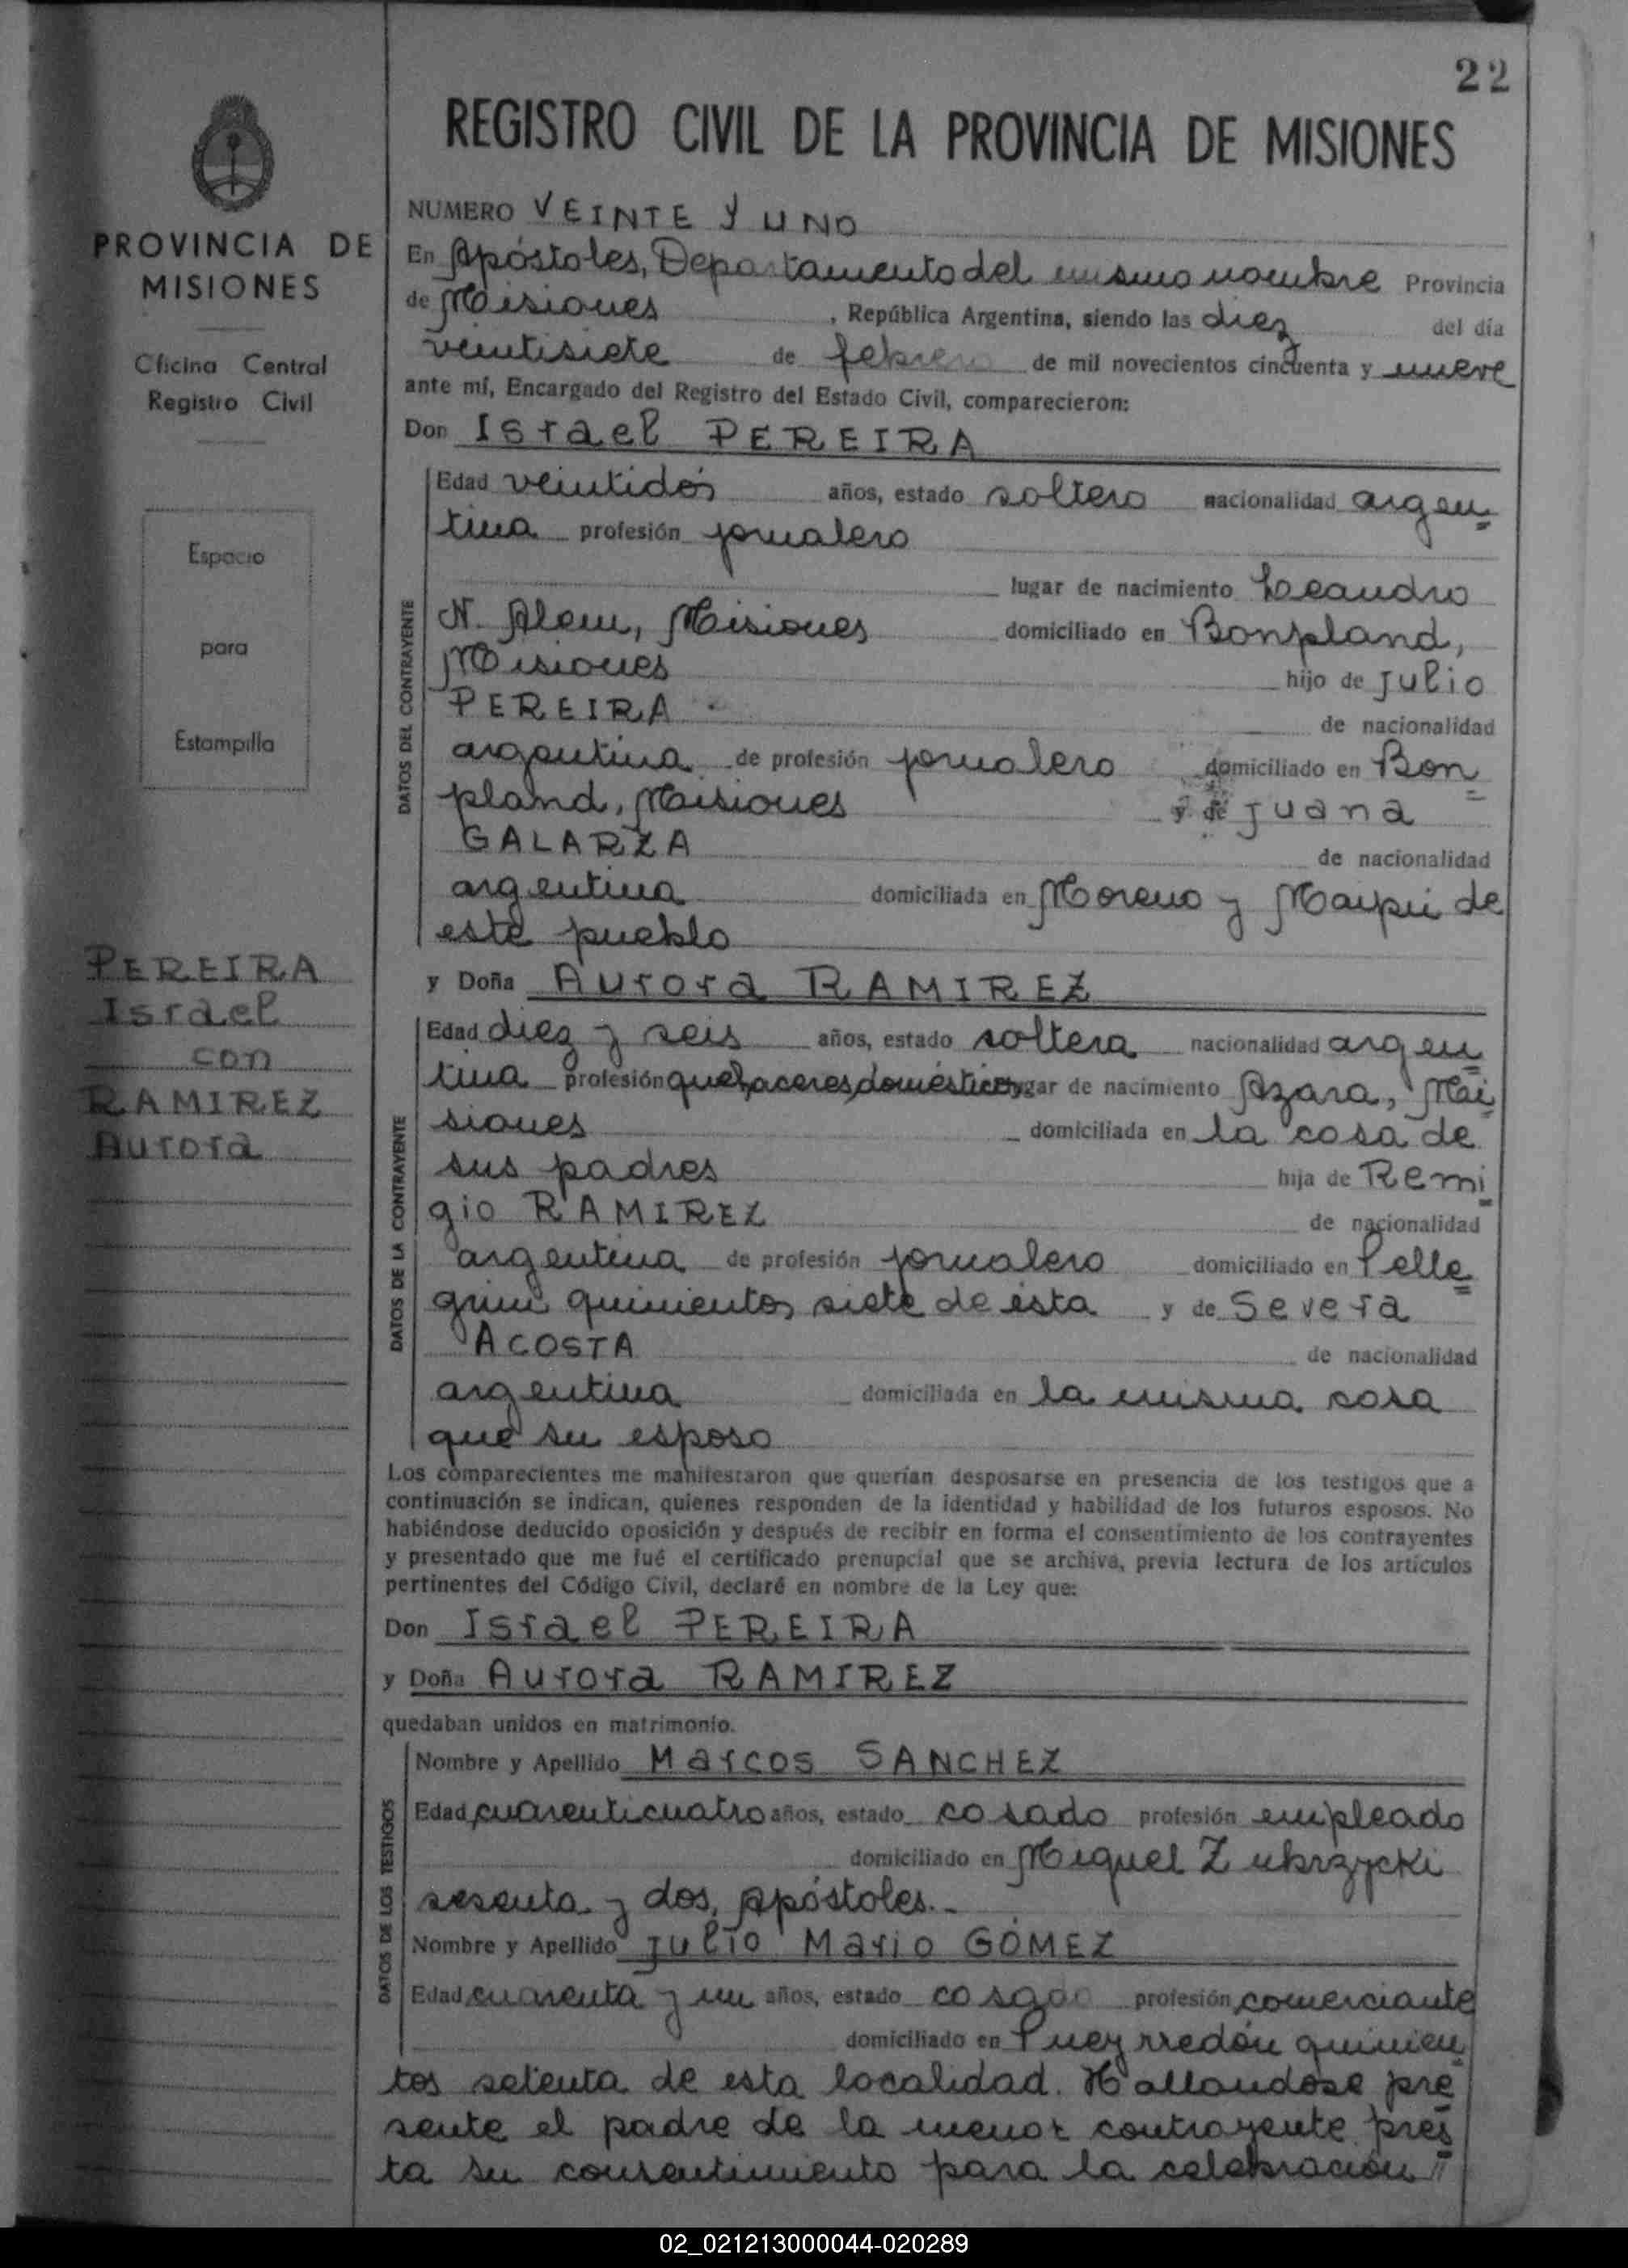 22
REGISTRO CIVIL DE LA PROVINCIA DE MISIONES
PROVINCIA DE
MISIONES
Oficina Central
Registro Civil
Espacio
para
Estampilla
PEREIRA
Israel
con
RAMIREZ
Aurora
NUMERO VEINTE Y UNO
En Apóstoles, Departamento del mismo nombre Provincia
de Misiones, República Argentina, siendo las diez del día
veintisiete de febrero de mil novecientos cincuenta y nueve
ante mí, Encargado del Registro del Estado Civil, comparecieron:
Don Israel PEREIRA
DATOS DEL CONTRAYENTE
Edad veintidós años, estado soltero nacionalidad argen=
tina profesión jornalero
lugar de nacimiento Leandro
N. Alem, Misiones domiciliado en Bonpland,
Misiones hijo de Julio
PEREIRA de nacionalidad
argentina de profesión jornalero domiciliado en Bon=
pland, Misiones y de Juana
GALARZA de nacionalidad
argentina domiciliada en Moreno y Maipú de
este pueblo
y Doña Aurora RAMIREZ
DATOS DE LA CONTRAYENTE
Edad diez y seis años, estado soltera nacionalidad argen=
tina profesión quehaceres domésticos lugar de nacimiento Azara, Mi=
siones domiciliada en la casa de
sus padres hija de Remi=
gio RAMIREZ de nacionalidad
argentina de profesión jornalero domiciliado en Pelle=
grini quinientos siete de ésta y de Severa
ACOSTA de nacionalidad
argentina domiciliada en la misma casa
que su esposo
Los comparecientes me manifestaron que querían desposarse en presencia de los testigos que a
continuación se indican, quienes responden de la identidad y habilidad de los futuros esposos. No
habiéndose deducido oposición y después de recibir en forma el consentimiento de los contrayentes
y presentado que me fué el certificado prenupcial que se archiva, previa lectura de los artículos
pertinentes del Código Civil, declaré en nombre de la Ley que:
Don Israel PEREIRA
y Doña Aurora RAMIREZ
quedaban unidos en matrimonio.
DATOS DE LOS TESTIGOS
Nombre y Apellido Marcos SANCHEZ
Edad cuarenticuatro años, estado casado profesión empleado
domiciliado en Miguel Zubrzycki
sesenta y dos, Apóstoles.-
Nombre y Apellido Julio Mario GÓMEZ
Edad cuarenta y un años, estado casado profesión comerciante
domiciliado en Pueyrredón quinien=
tos setenta de esta localidad. Hallandose pre=
sente el padre de la menor contrayente pres=
ta su consentimiento para la celebración //
02_021213000044-020289